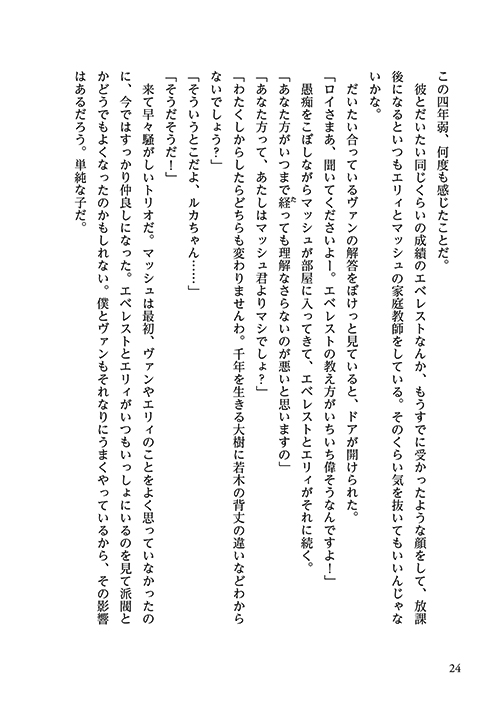 この四年弱、何度も感じたことだ。
　彼とだいたい同じくらいの成績のエベレストなんか、もうすでに受かったような顔をして、放課
後になるといつもエリィとマッシュの家庭教師をしている。そのくらい気を抜いてもいいんじゃな
いかな。
　だいたい合っているヴァンの解答をぼけっと見ていると、ドアが開けられた。
「ロイさまあ、聞いてくださいよー。エベレストの教え方がいちいち偉そうなんですよ！」
　愚痴をこぼしながらマッシュが部屋に入ってきて、エベレストとエリィがそれに続く。
「あなた方がいつまで経た っても理解なさらないのが悪いと思いますの」
「あなた方って、あたしはマッシュ君よりマシでしょ？」
「わたくしからしたらどちらも変わりませんわ。千年を生きる大樹に若木の背丈の違いなどわから
ないでしょう？」
「そういうとこだよ、ルカちゃん……」
「そうだそうだ！」
　来て早々騒がしいトリオだ。マッシュは最初、ヴァンやエリィのことをよく思っていなかったの
に、今ではすっかり仲良しになった。エベレストとエリィがいつもいっしょにいるのを見て派閥と
かどうでもよくなったのかもしれない。僕とヴァンもそれなりにうまくやっているから、その影響
はあるだろう。単純な子だ。
24